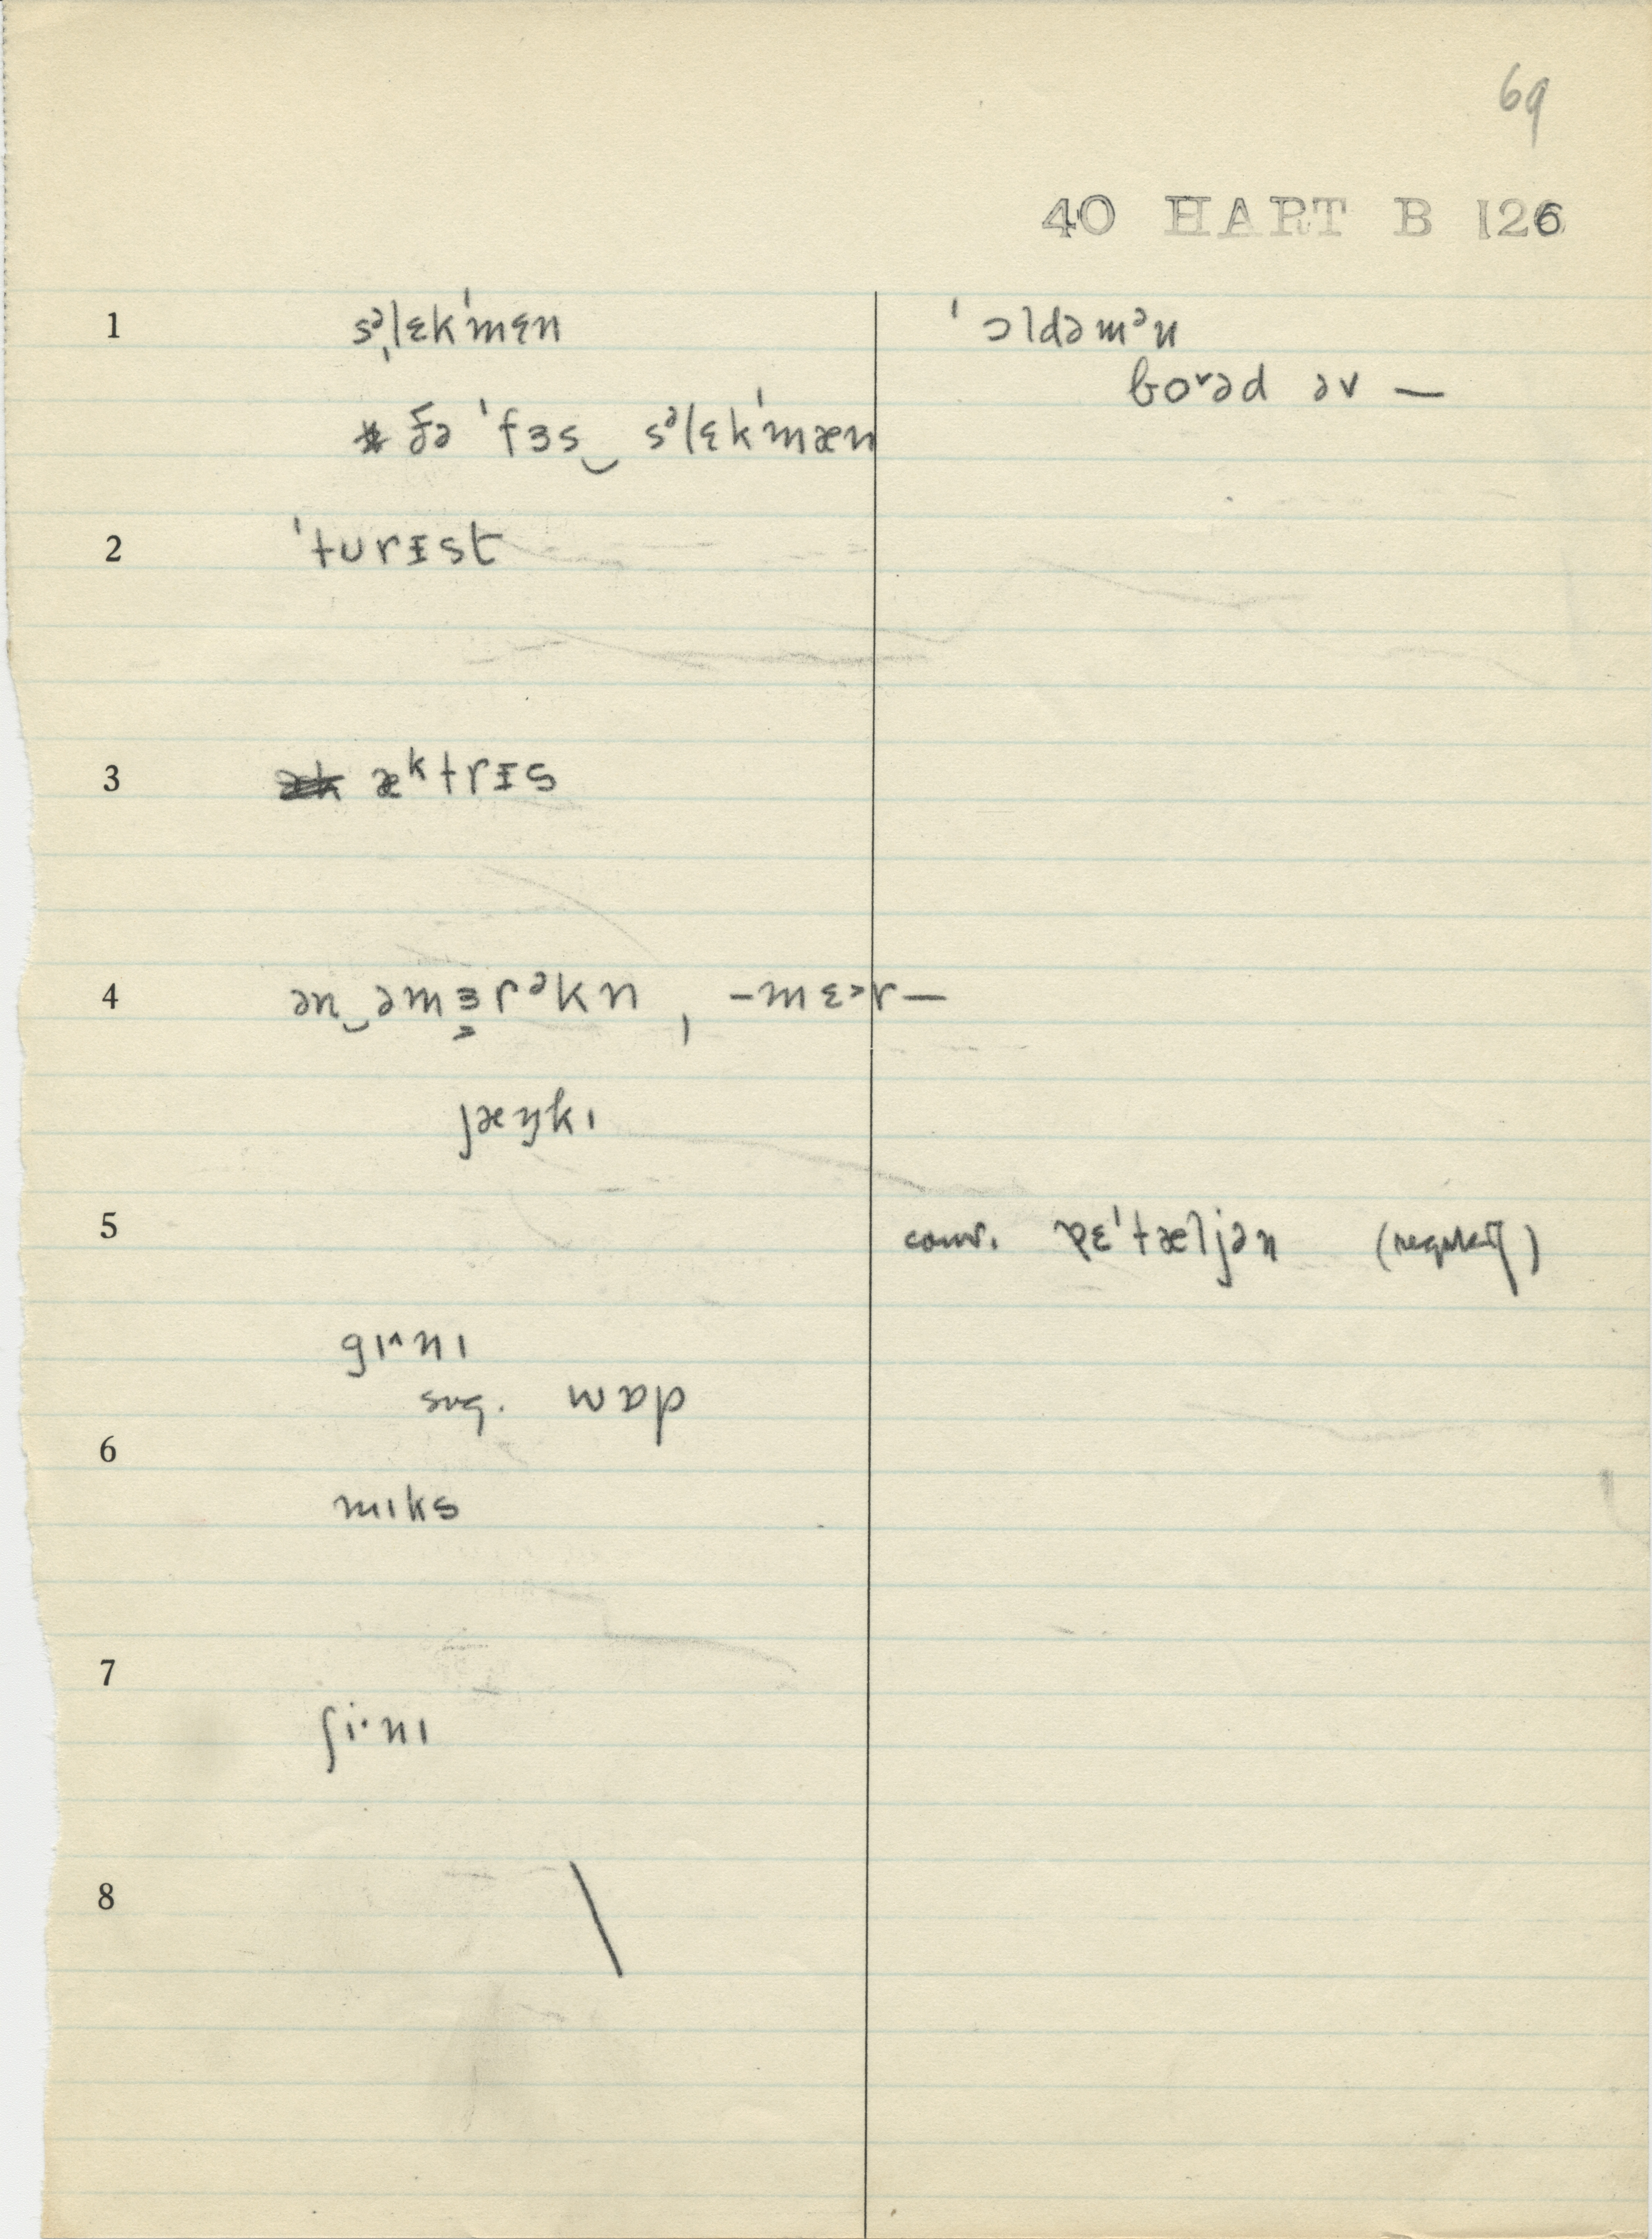 69
40 HART B 126
1 sᵊ̩lɛkˈmɛn ˈɔldəmᵊn
boᵛəd əv —
ðə ˈfɜs‿sᵊlɛkˈmæn
2 ˈturɪst
3 æᵏtrɪs
4 ən‿əmɜ̱rᵊkn, -mɛ˃r—
jæŋkɪ
5 conv. ɪ̵ˈtæljən
gɪ^nɪ
sug. wɒp
6
mɪks
7
ʃi·nɪ
8 \